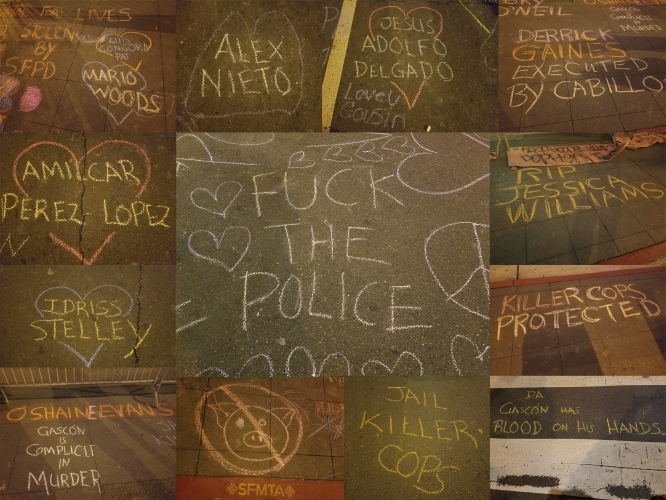 FOR LIVES
STOLEN
BY
SFPD
LUIS
GONGORA
PAT
MARIO
WOODS
ALEX
NIETO
JESUS
ADOLFO
DELGADO
Love y
Cousin
O'NEIL
GASCON
IS
COMPLICIT
IN
MURDER
DERRICK
GAINES
EXECUTED
BY CABILLO
AMILCAR
PEREZ-LOPEZ
FUCK
THE
POLICE
RIP
JESSICA
WILLIAMS
IDRISS
STELLEY
KILLER COPS
PROTECTED
OSHAINE EVANS
GASCON
IS
COMPLICIT
IN
MURDER
SFMTA
JAIL
KILLER
COPS
DA
GASCON HAS
BLOOD ON HIS HANDS